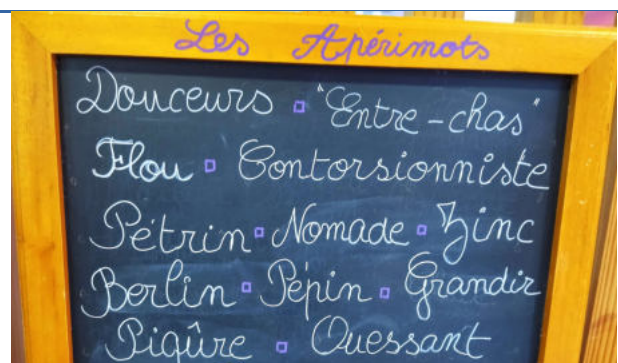 Les Apérimots
Douceurs ▫ "Entre-chas"
Flou ▫ Contorsionniste
Pétrin ▫ Nomade ▫ Zinc
Berlin ▫ Pépin ▫ Grandir
Piqûre ▫ Ouessant